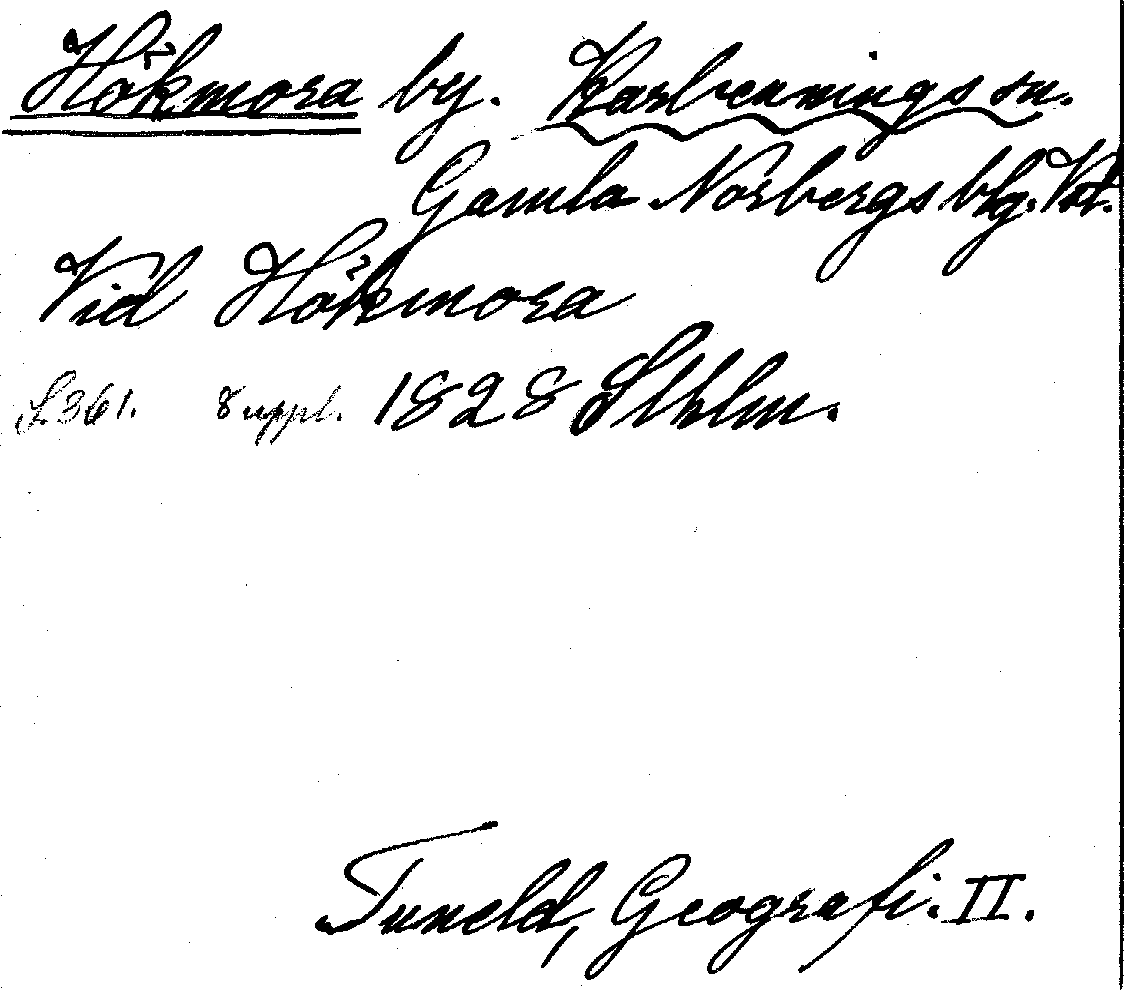 Hökmora by. Karbennings sn.
Gamla Norbergs blg. Vstm.
Vid Hökmora
S. 361. 8 uppl. 1828 Sthlm.
Tuneld, Geografi. II.